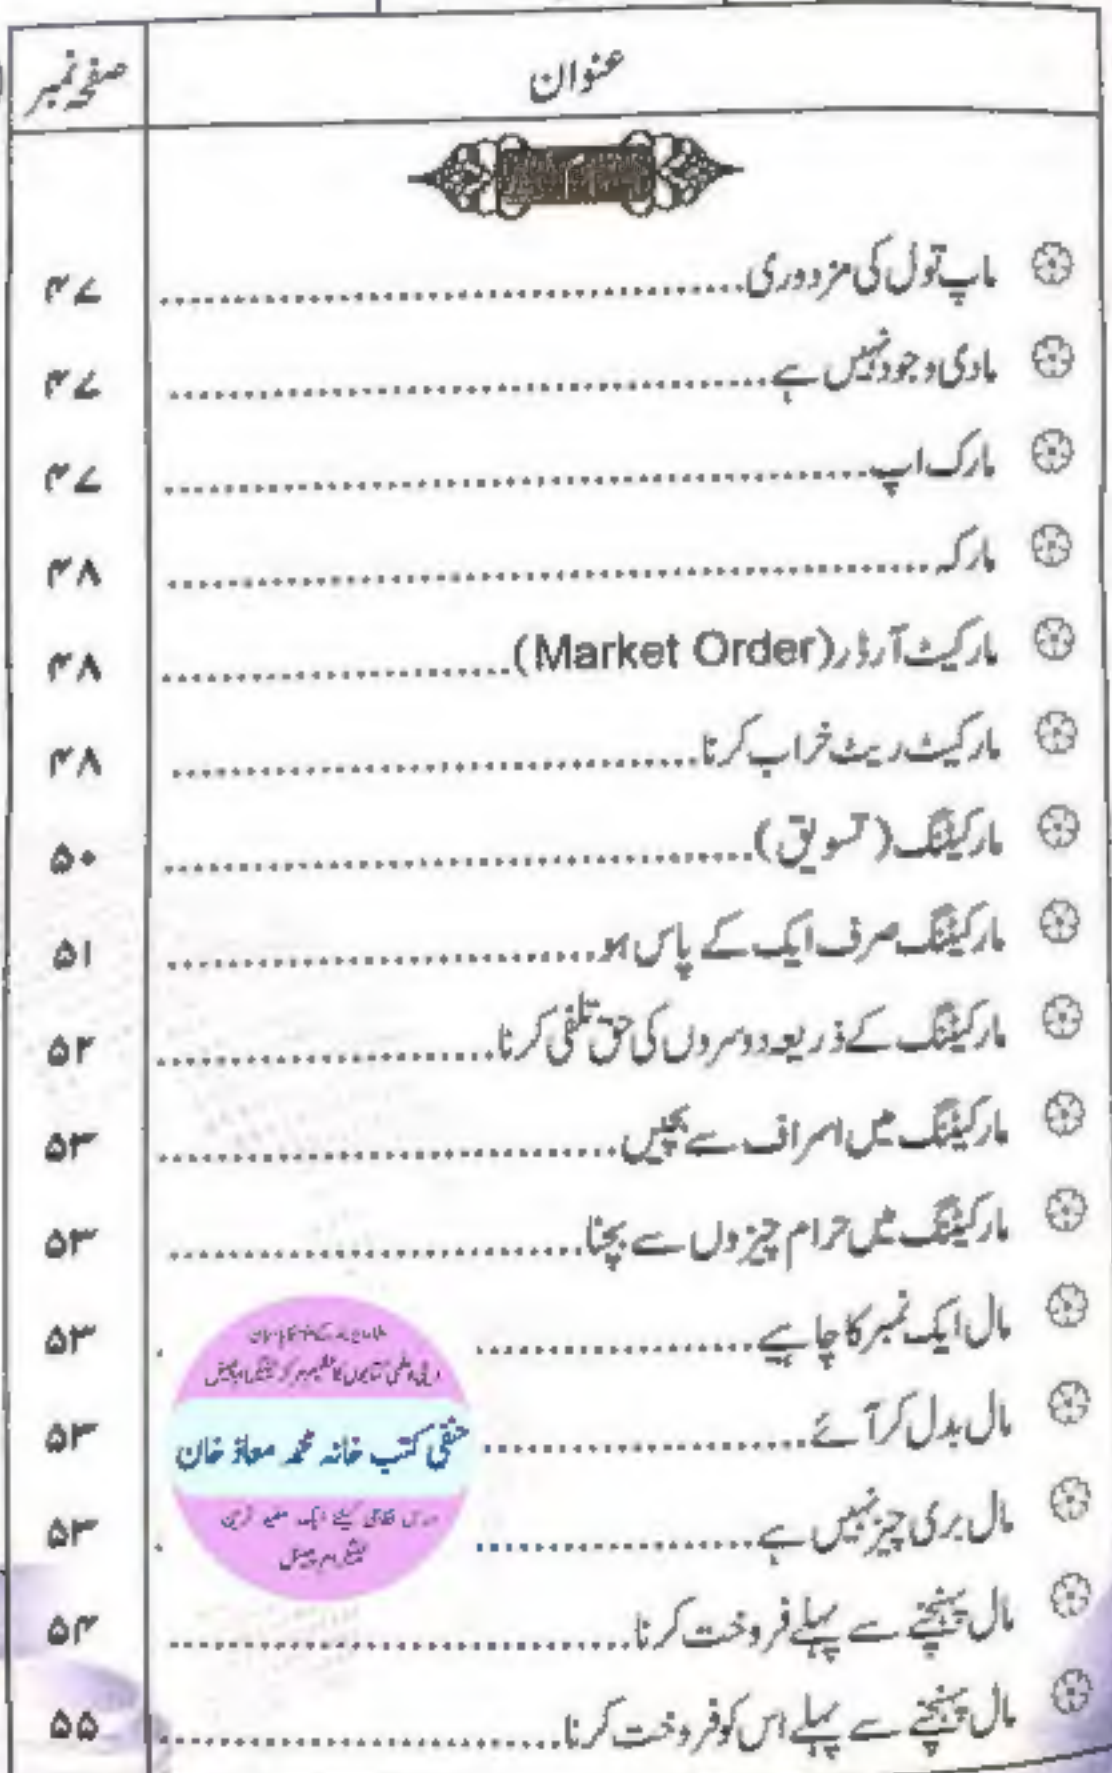 عنوان صفحہ نمبر
ماپ تول کی مزدوری ۴۷
مادی وجود نہیں ہے ۴۷
مارک اپ ۴۷
مارکہ ۴۸
مارکیٹ آرڈر (Market Order) ۴۸
مارکیٹ ریٹ خراب کرنا ۴۸
مارکیٹنگ (تسویق) ۵۰
مارکیٹنگ صرف ایک کے پاس ہو ۵۱
مارکیٹنگ کے ذریعہ دوسروں کی حق تلفی کرنا ۵۲
مارکیٹنگ میں اسراف سے بچیں ۵۳
مارکیٹنگ میں حرام چیزوں سے بچنا ۵۳
مال ایک نمبر کا چاہیے ۵۳
مال بدل کر آئے ۵۳
مال بری چیز نہیں ہے ۵۳
مال پہنچنے سے پہلے فروخت کرنا ۵۴
مال پہنچنے سے پہلے اس کو فروخت کرنا ۵۵
حنفی کتب خانہ محمد معاذ خان
درس نظامی کیلئے ایک مفید ترین
ٹیلیگرام چینل